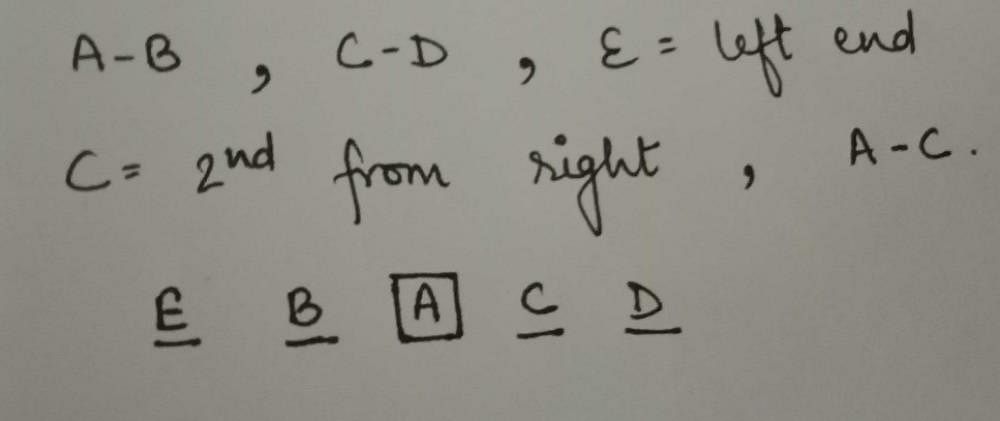 A-B , C-D , E = left end
C = 2nd from right , A-C.
E B A C D